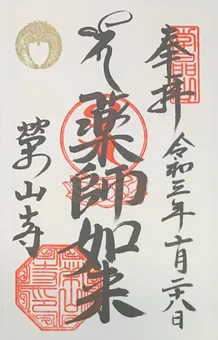 奉拝
令和三年十月二十八日
薬師如来
山寺